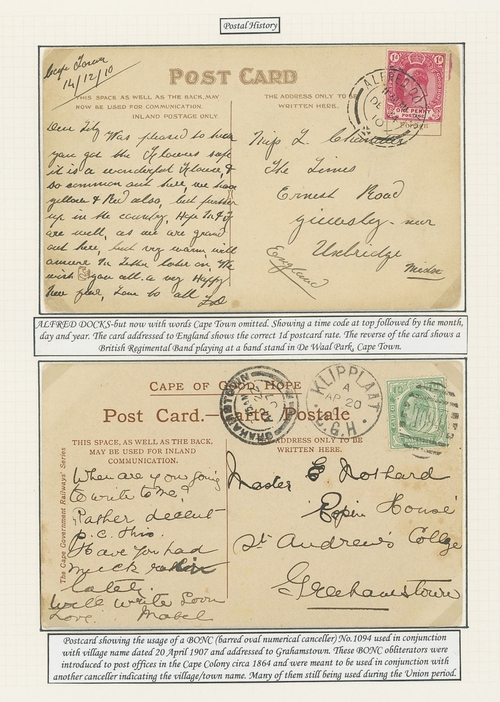 Postal History
Cape Town
14/12/10
POST CARD
THIS SPACE AS WELL AS THE BACK, MAY
NOW BE USED FOR COMMUNICATION.
INLAND POSTAGE ONLY.
THE ADDRESS ONLY TO BE
WRITTEN HERE.
ALFRED DO
ONE PENNY
Dear Lily Was pleased to hear
you got the Flowers safe
it is a wonderful Flower, &
so common out here, we have
yellow & Red also, but further
up in the country, Hope
are well, as we are grand
out here, but very warm will
answer later on, We
wish you all a very Happy
New Year, Love to all
Miss L.
The Limes
Ernest Road
nur
Uxbridge
Middx
England
ALFRED DOCKS-but now with words Cape Town omitted. Showing a time code at top followed by the month,
day and year. The card addressed to England shows the correct 1d postcard rate. The reverse of the card shows a
British Regimental Band playing at a band stand in De Waal Park, Cape Town.
CAPE OF GOOD HOPE
Post Card.—Carte Postale
THIS SPACE, AS WELL AS THE BACK,
MAY BE USED FOR INLAND
COMMUNICATION.
ADDRESS ONLY TO BE
WRITTEN HERE.
GRAHAMSTOWN
KLIPPLAAT
A
AP 20
C.G.H.
The Cape Government Railways' Series
When are you going
to write to me?
Rather decent
p.c. this.
Have you had
much
lately.
Well write soon
Love. Mabel
Master
House
St Andrew's College
Grahamstown
Postcard showing the usage of a BONC (barred oval numerical canceller) No.1094 used in conjunction
with village name dated 20 April 1907 and addressed to Grahamstown. These BONC obliterators were
introduced to post offices in the Cape Colony circa 1864 and were meant to be used in conjunction with
another canceller indicating the village/town name. Many of them still being used during the Union period.